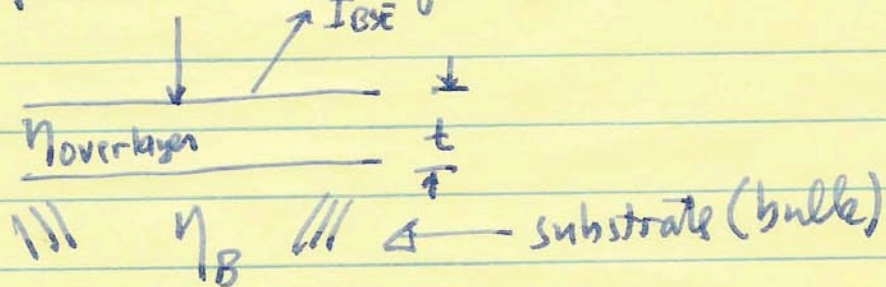 I BSE
η overlayer t
η B substrate (bulk)